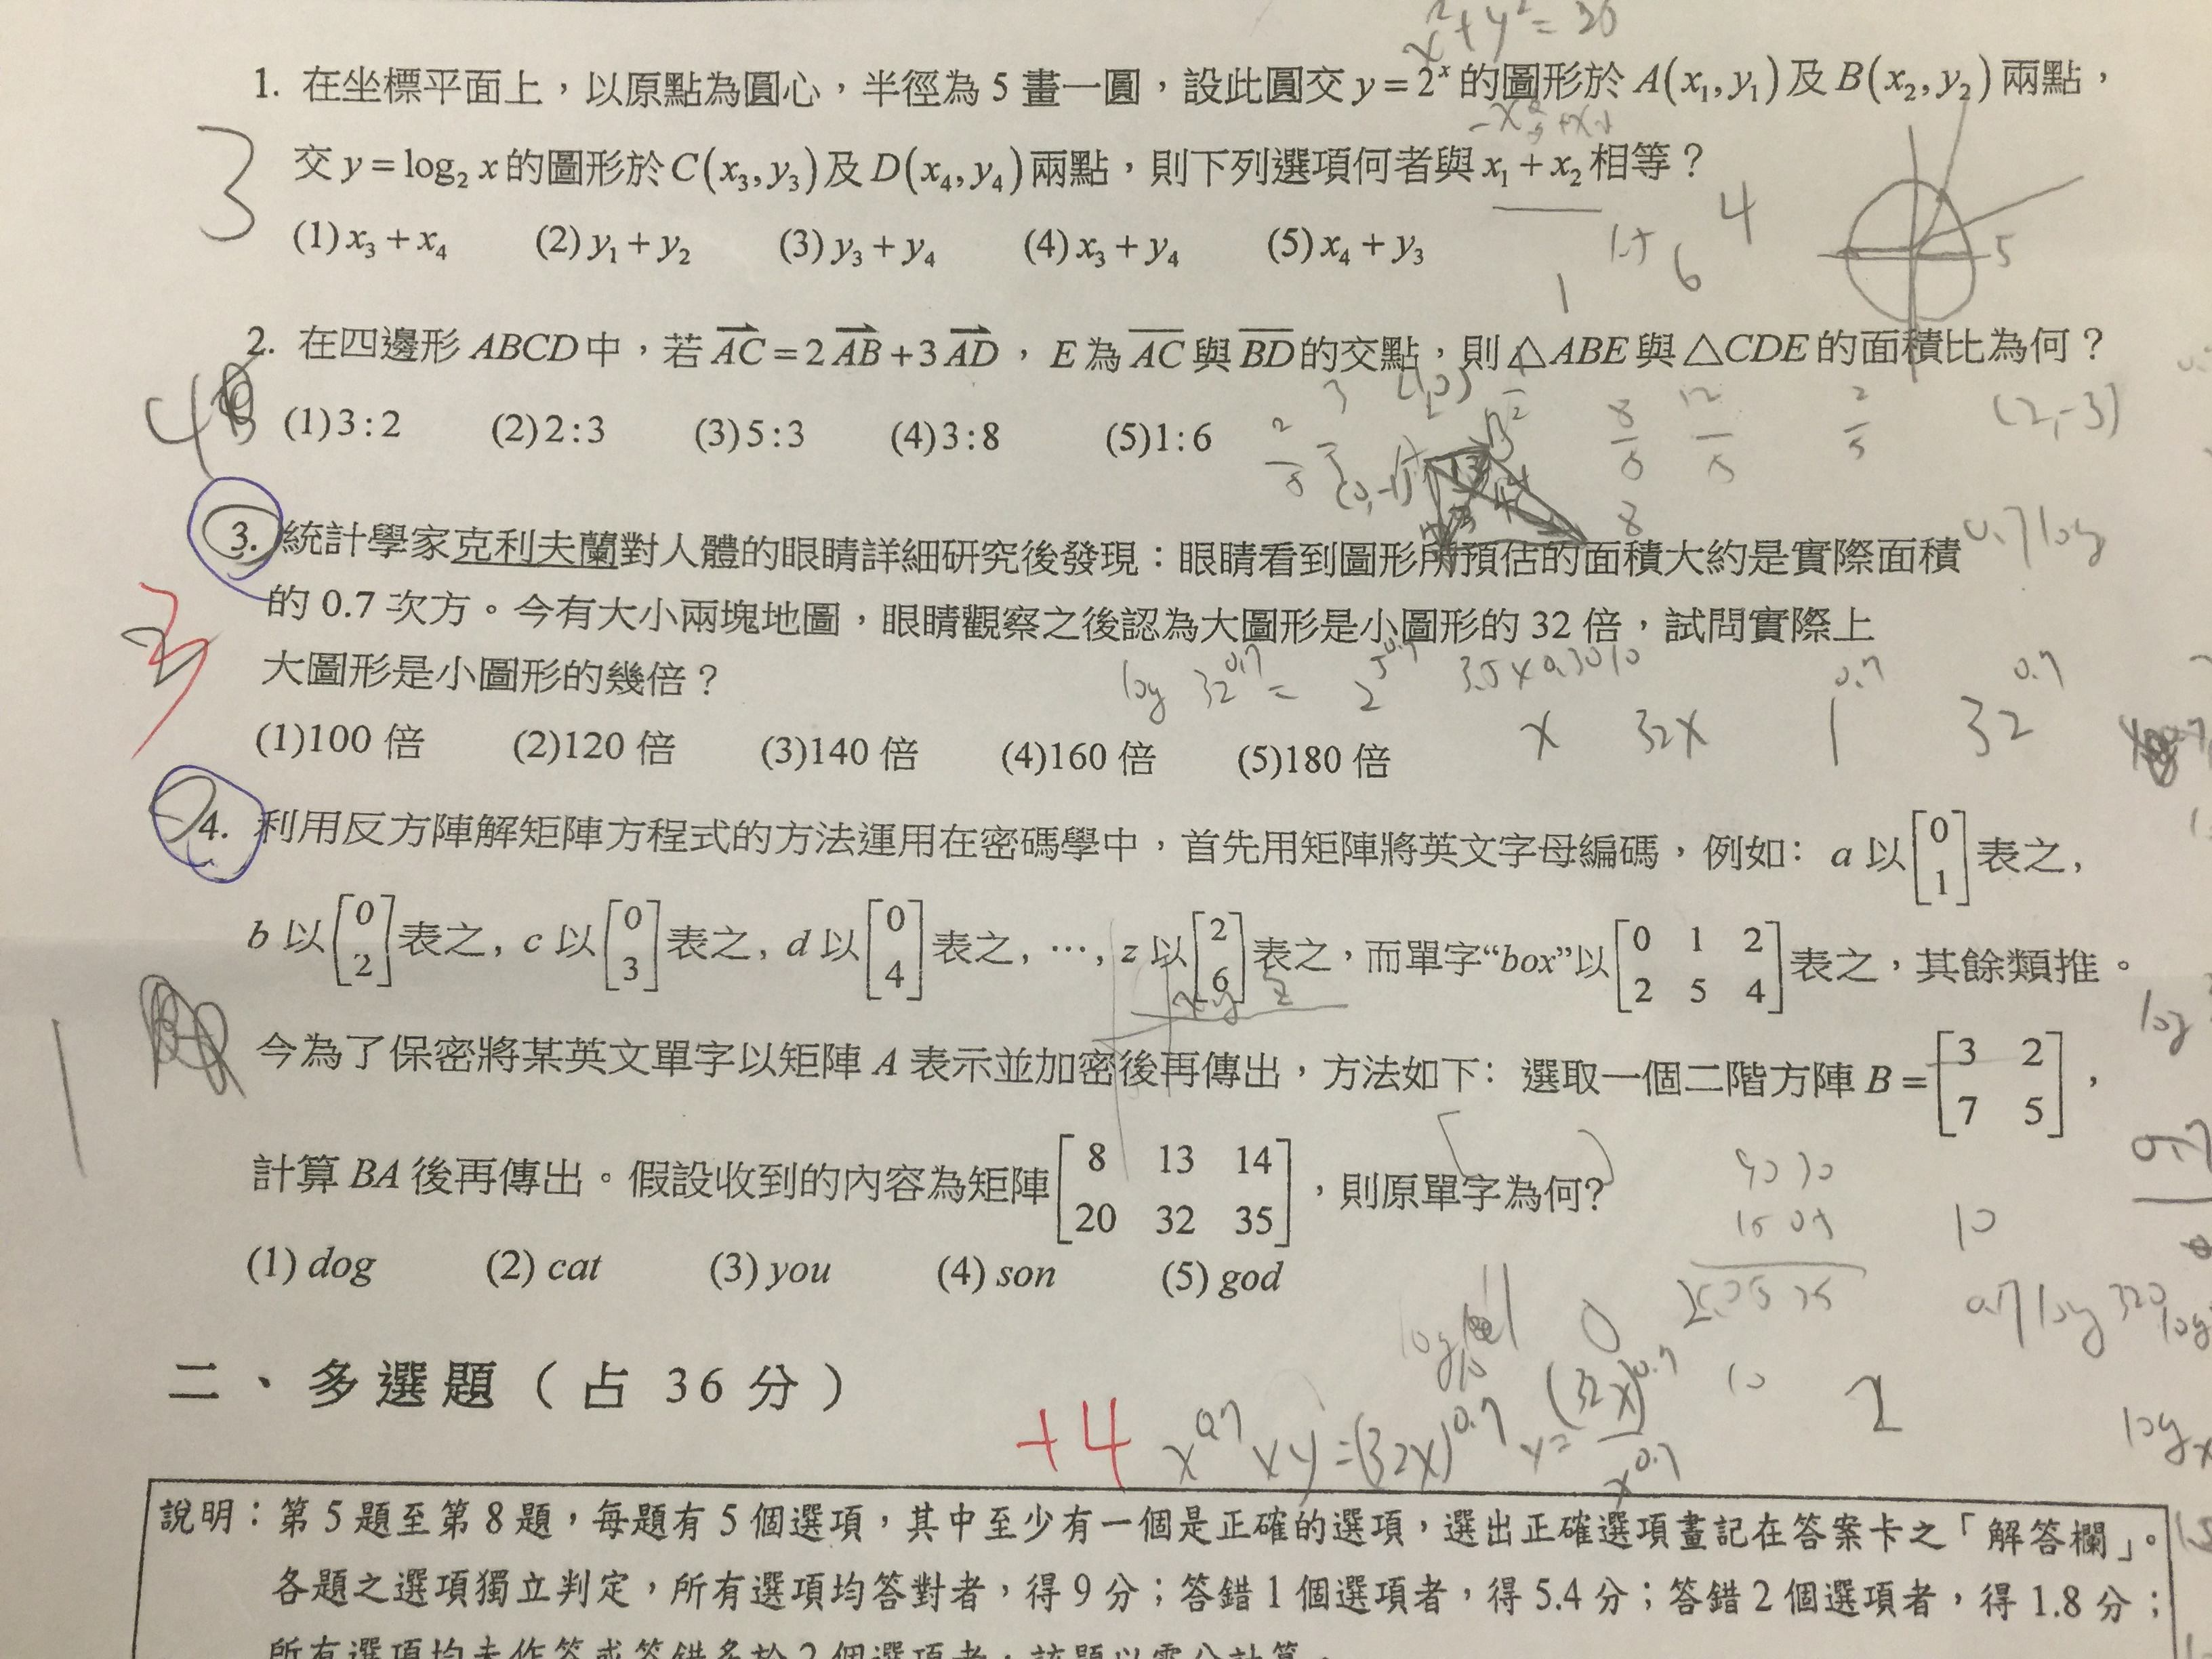 x²+y²=20
1. 在坐標平面上，以原點為圓心，半徑為 5 畫一圓，設此圓交 y = 2ˣ 的圖形於 A(x₁, y₁) 及 B(x₂, y₂) 兩點，
交 y = log₂ x 的圖形於 C(x₃, y₃) 及 D(x₄, y₄) 兩點，則下列選項何者與 x₁ + x₂ 相等？
3
(1) x₃ + x₄ (2) y₁ + y₂ (3) y₃ + y₄ (4) x₃ + y₄ (5) x₄ + y₃
4
1 6
5
2. 在四邊形 ABCD 中，若 AC = 2 AB + 3 AD， E 為 AC 與 BD 的交點，則 △ABE 與 △CDE 的面積比為何？
4
(1) 3 : 2 (2) 2 : 3 (3) 5 : 3 (4) 3 : 8 (5) 1 : 6
(2,-3)
3. 統計學家克利夫蘭對人體的眼睛詳細研究後發現：眼睛看到圖形所預估的面積大約是實際面積
0.7 log
的 0.7 次方。今有大小兩塊地圖，眼睛觀察之後認為大圖形是小圖形的 32 倍，試問實際上
3
大圖形是小圖形的幾倍？
log 32^0.7 = 2^5^0.7 3.5 x 0.3010
(1)100 倍 (2)120 倍 (3)140 倍 (4)160 倍 (5)180 倍
x 32x 1^0.7 32^0.7
4. 利用反方陣解矩陣方程式的方法運用在密碼學中，首先用矩陣將英文字母編碼，例如：a 以 [0 1] 表之,
b 以 [0 2] 表之, c 以 [0 3] 表之, d 以 [0 4] 表之, …, z 以 [2 6] 表之，而單字“box”以 [0 1 2 2 5 4] 表之，其餘類推。
x y z
1
今為了保密將某英文單字以矩陣 A 表示並加密後再傳出，方法如下：選取一個二階方陣 B = [3 2 7 5]，
計算 BA 後再傳出。假設收到的內容為矩陣 [8 13 14 20 32 35]，則原單字為何?
10
(1) dog (2) cat (3) you (4) son (5) god
0.7 log 32
二、多選題（占 36 分）
+4
x^0.7 x y = (32x)^0.7 y = (32x)^0.7 x^0.7
說明：第 5 題至第 8 題，每題有 5 個選項，其中至少有一個是正確的選項，選出正確選項畫記在答案卡之「解答欄」。
各題之選項獨立判定，所有選項均答對者，得 9 分；答錯 1 個選項者，得 5.4 分；答錯 2 個選項者，得 1.8 分；
所有選項均未作答或答錯多於 2 個選項者，該題以零分計算。